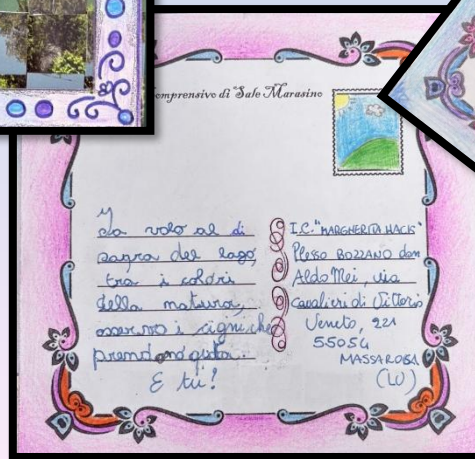 omprensivo di Sale Marasino
volo al di
sopra del lago
tra i colori
della natura,
osservo i cigni che
prendono quota.
E tu?
I.C. "MARGHERITA HACK"
Plesso BOZZANO don
Aldo Mei, via
Cavalieri di Vittorio
Veneto, 221
55054
MASSAROSA
(LU)